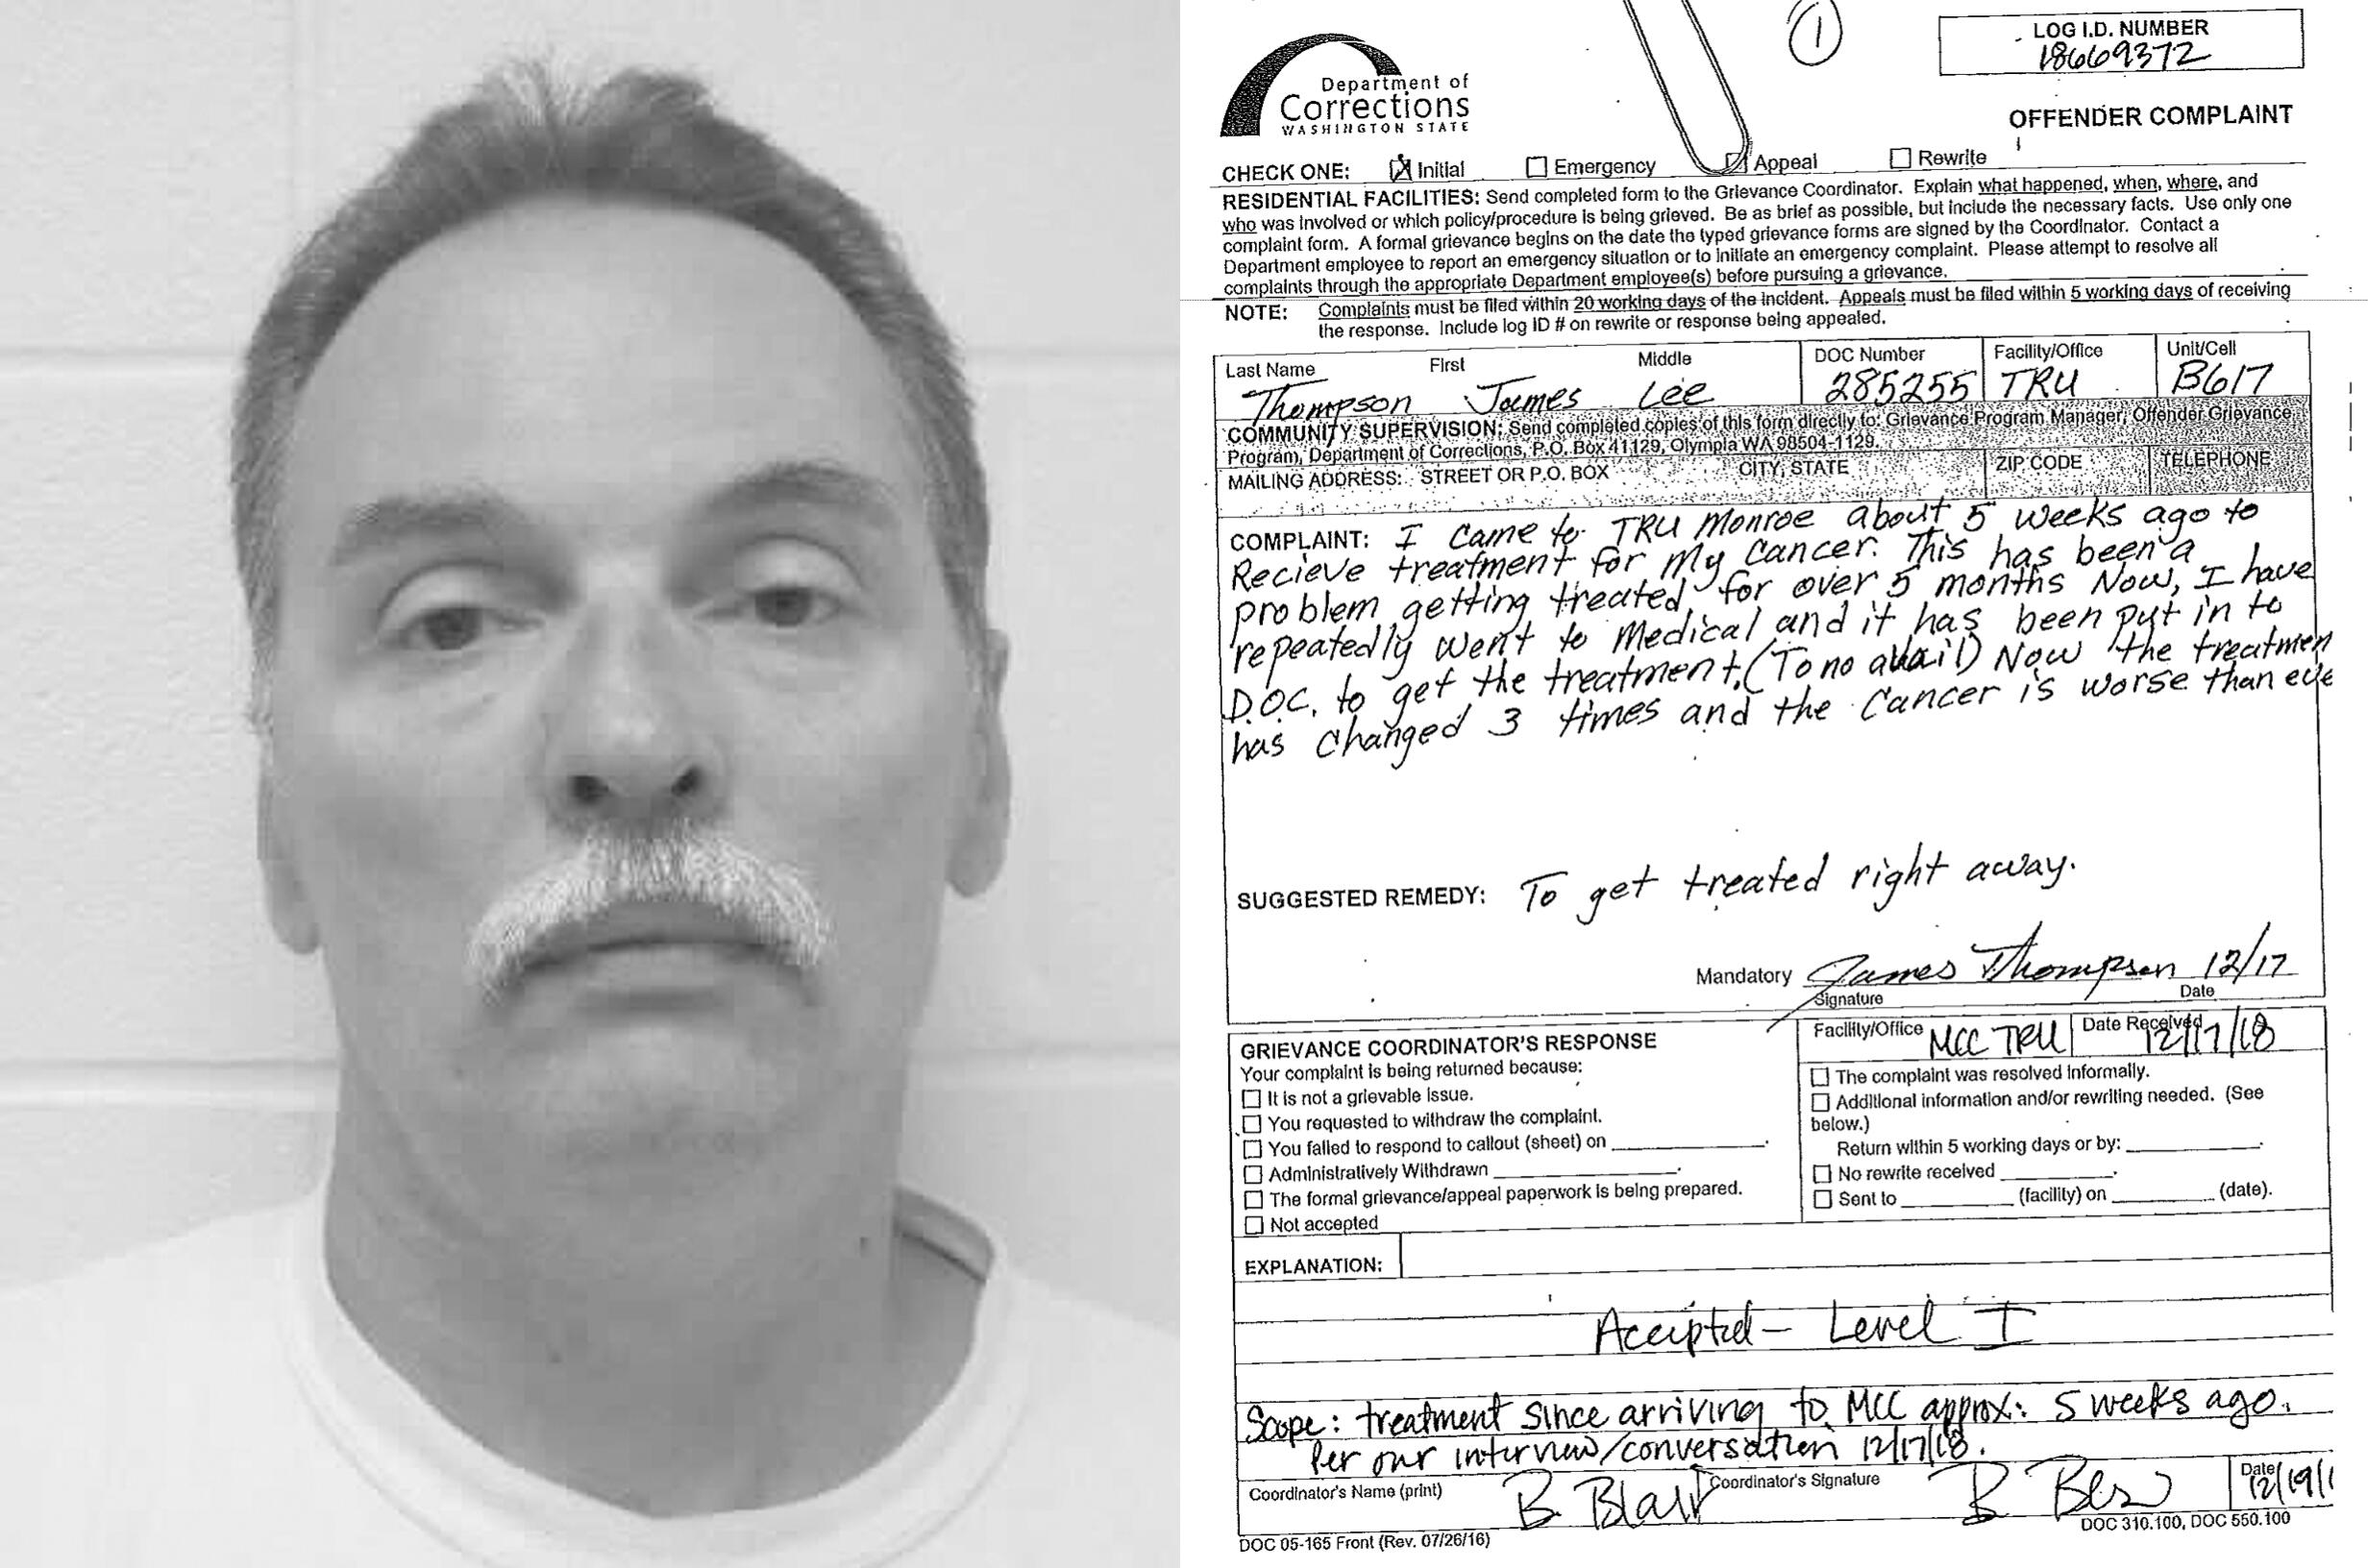 ①
LOG I.D. NUMBER
18669372
Department of
Corrections
WASHINGTON STATE
OFFENDER COMPLAINT
CHECK ONE: ☒ Initial ☐ Emergency ☐ Appeal ☐ Rewrite
RESIDENTIAL FACILITIES: Send completed form to the Grievance Coordinator. Explain what happened, when, where, and
who was involved or which policy/procedure is being grieved. Be as brief as possible, but include the necessary facts. Use only one
complaint form. A formal grievance begins on the date the typed grievance forms are signed by the Coordinator. Contact a
Department employee to report an emergency situation or to initiate an emergency complaint. Please attempt to resolve all
complaints through the appropriate Department employee(s) before pursuing a grievance.
NOTE: Complaints must be filed within 20 working days of the incident. Appeals must be filed within 5 working days of receiving
the response. Include log ID # on rewrite or response being appealed.
Last Name First Middle DOC Number Facility/Office Unit/Cell
Thompson James Lee 285255 TRU B617
COMMUNITY SUPERVISION: Send completed copies of this form directly to: Grievance Program Manager, Offender Grievance
Program, Department of Corrections, P.O. Box 41129, Olympia WA 98504-1129.
MAILING ADDRESS: STREET OR P.O. BOX CITY, STATE ZIP CODE TELEPHONE
COMPLAINT: I came to TRU Monroe about 5 weeks ago to
Recieve treatment for my cancer. This has been a
problem getting treated for over 5 months Now, I have
repeatedly went to Medical and it has been put in to
D.O.C. to get the treatment, (To no avail) Now the treatmen
has changed 3 times and the cancer is worse than eve
SUGGESTED REMEDY: To get treated right away.
Mandatory James Thompson 12/17
Signature Date
GRIEVANCE COORDINATOR'S RESPONSE
Your complaint is being returned because:
☐ It is not a grievable issue.
☐ You requested to withdraw the complaint.
☐ You failed to respond to callout (sheet) on ____.
☐ Administratively Withdrawn ____.
☐ The formal grievance/appeal paperwork is being prepared.
☐ Not accepted
Facility/Office MCC TRU Date Received 12/17/18
☐ The complaint was resolved informally.
☐ Additional information and/or rewriting needed. (See
below.)
Return within 5 working days or by: ____.
☐ No rewrite received ____.
☐ Sent to ____ (facility) on ____ (date).
EXPLANATION:
Accepted – Level I
Scope: treatment since arriving to MCC approx: 5 weeks ago.
Per our interview/conversation 12/17/18.
Coordinator's Name (print) B. Blair Coordinator's Signature Date 12/19/1
DOC 05-165 Front (Rev. 07/26/16) DOC 310.100, DOC 550.100